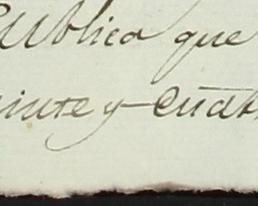 ublica que
einte y cuat